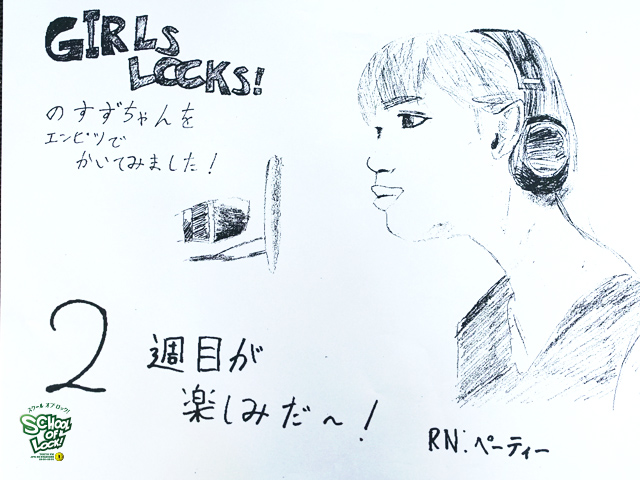 GIRLS
LOCKS!
のすずちゃんを
エンピツで
かいてみました!
2週目が
楽しみだ〜!
RN:ペーティー
スクール オブ ロック!
SCHOOL
OF
LOCK!